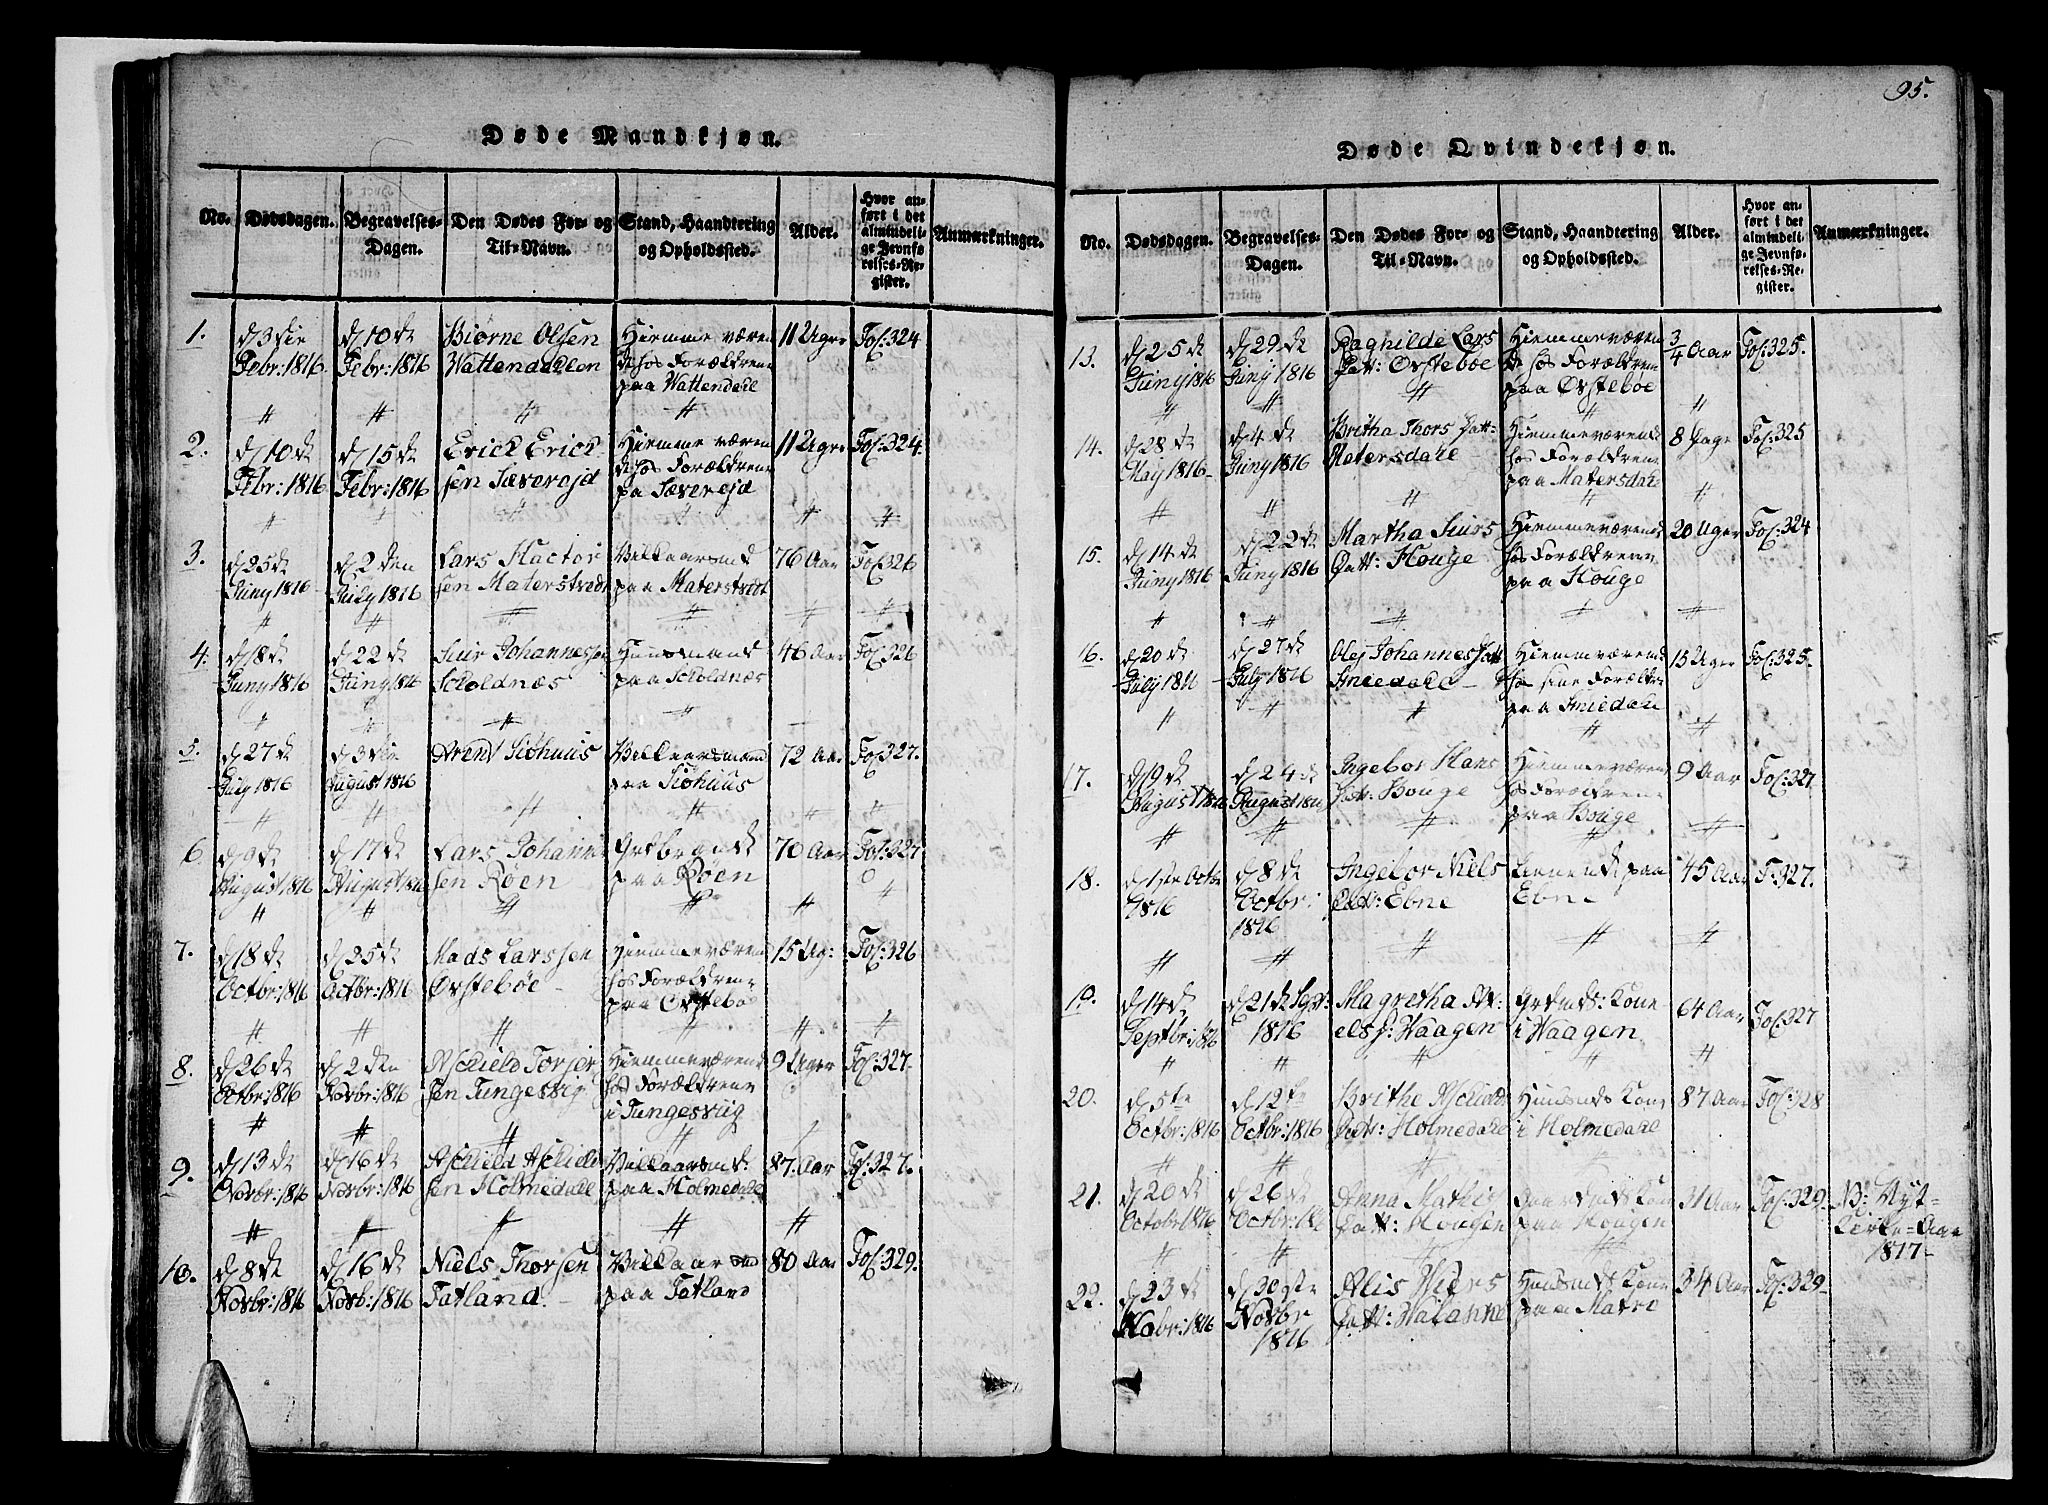 95.
Døde Mandkjøn.
No.
Dødsdagen.
Begravelses-
Dagen.
Den Dødes For- og
Til-Navn.
Stand, Haandtering
og Opholdssted.
Alder.
Hvor an-
ført i det
almindeli-
ge Jevnfø-
relses-Re-
gister.
Anmærkninger.
1.
d 3die
Febr: 1816.
d 10de
Febr: 1816
Biørne Olsen
Wattendahlen
Hiemme væren
de hos Forældrene
paa Wattendahl
11 Uger
Fol: 324
2.
d 10de
Febr: 1816
d 15de
Febr: 1816
Erick Erick-
sen Sævereid
Hiemme væren
de hos Forældrene
paa Sævereid
11 Uger
Fol: 324.
3.
d 25de
Juny 1816
d 2den
July 1816
Lars Hactor
sen Materstvedt
Vilkaarsmd
paa Materstvedt
76 Aar
Fol: 326
4.
d 18de
Juny 1816
d 22de
Juny 1816
Siur Johannessen
Scholdnæs
Huusmand
paa Scholdnæs
46 Aar
Fol: 326
5.
d 27de
July 1816
d 3die
August 1816
Arent Siøhuus
Vilkaarsmand
paa Siøhuus
72 Aar
Fol: 327.
6.
d 9de
August 1816
d 17de
August 1816
Lars Johanne
sen Røen
paa Røen
70 Aar
Fol: 327
7.
d 18de
Octbr: 1816
d 25de
Octbr: 1816
Mads Larssen
Øvstebøe
Hiemmeværen
hos Forældrene
paa Øvstebø
15 Ug:
Fol: 326
8.
d 26de
Octbr: 1816
d 2den
Novbr: 1816
Aschield Torger
sen Tungesvig
Hiemmeværende
hos Forældrene
i Tungesvig
9 Uger
Fol: 327-
9.
d 13de
Novbr: 1816
d 16de
Novbr: 1816
Aschield Aschield
sen Holmedahl
Vilkaarsmd:
paa Holmedahl
87. Aar
Fol: 327.
10.
d 8de
Novbr: 1816
d 16de
Novbr: 1816
Niels Thorsen
Tatland.
Vilkaarsmd
paa Tatland
80 Aar
Fol: 329.
Døde Qvindekjøn.
No.
Dødsdagen.
Begravelses-
Dagen.
Den Dødes For- og
Til-Navn.
Stand, Haandtering
og Opholdssted.
Alder.
Hvor an-
ført i det
almindeli-
ge Jevnfø-
relses-Re-
gister.
Anmærkninger.
13.
d 25de
Juny 1816
d 29de
Juny 1816
Raghilde Lars
Datt: Øvstebøe
Hiemmeværen
de hos Forældrene
paa Øvstebøe
3/4 Aar
Fol: 325.
14.
d 28de
May 1816-
d 4de
Juny 1816
Britha Thors Datt:
Matersdahl
Hiemmeværende
hos Forældrene
paa Matersdahl
8 Dage
Fol: 325
15.
d 14de
Juny 1816
d 22de
Juny 1816
Martha Siurs
Datt: Houge
Hiemmeværende
hos Forældrene
paa Houge
20 Uger
Fol: 324
16.
d 20de
July 1816
d 27de
July 1816
Johannes Datt
Hiemmværende
hos sine Forældre
15 Uger
Fol: 325-
17.
d 19de
August 1816
d 24de
August 1816
Ingebor Hans
Datt: Houge
Hiemmeværend
hos Forældrene
paa Houge
9 Aar
Fol: 327
18.
d 1ste Octbr
1816
d 8de
Octbr:
1816
Ingebor Niels
Datt: Ebne
paa
Ebne
45 Aar
F: 327.
19.
d 14de
Septbr: 1816
d 21de Sept:
1816
Magretha
Haagen
Kone
i Haagen
64 Aar
Fol: 327
20.
d 5te
Octbr: 1816
d 12te
Octbr: 1816
Brithe Aschield
Datt: Holmedahl
Huusmds Kone
i Holmedahl
87 Aar
Fol: 328
21.
d 20de
Octobr 1816
d 26de
Octbr: 1816
Anna Mathis
Datt: Hougen
Gaardmds Kone
paa Hougen
31 Aar
Fol: 329-
NB: Nyt-
Kirke-Aar
1817-
22.
d 23de
Nobr: 1816
d 30gste
Novbr
1816
Alis
Datt:
Huusmds Kone
paa Matre
34 Aar
Fol: 329-